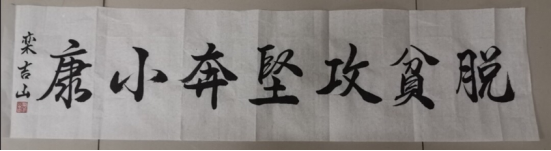 脱貧攻堅奔小康
栾吉山